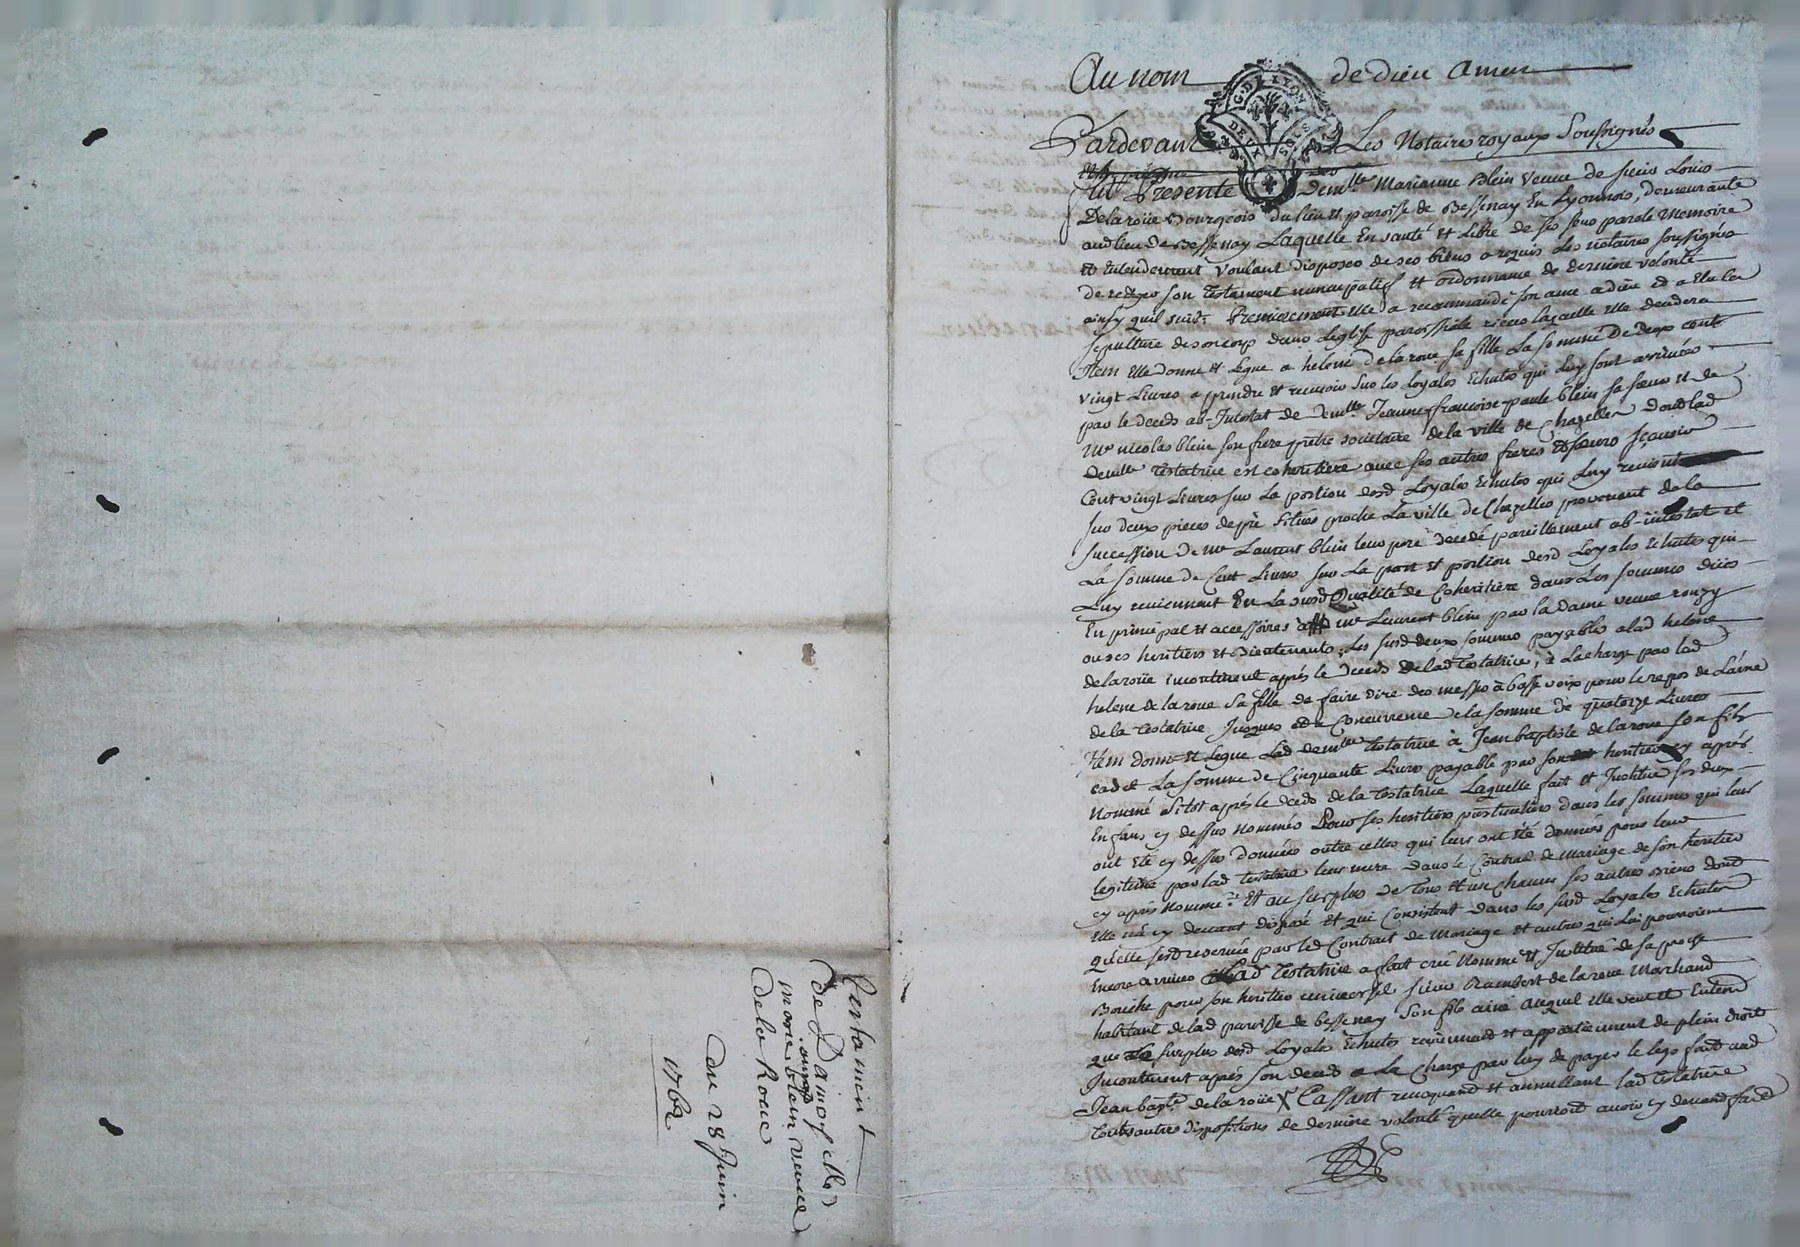 Au nom de dieu amen
G. DE LYON
DEUX SOLS
Pardevant Les Notaires royaux Soussignés
fut Presente demlle Marianne Blein veuve de sieur Louis
Delaroüe Bourgeois du lieu et paroisse de Bessenay En Lyonnois, demeurante
audlieu de Bessenay Laquelle En santé et Libre de ses sens parole memoire
et entendement voulant disposer de ses biens a requis les notaires soussignés
de rediger son testament nuncupatif et ordonnance de derniere volonté
ainsy quil suit: Premierement elle a recommandé son ame a dieu et a elu la
sepulture de son corps dans Leglise paroissiale riere laquelle elle decedera
Item elle donne et Legue a helene delaroue sa fille La somme de deux cent
vingt Livres a prendre et recevoir sur les Loyales Echutes qui luy sont arrivées
par le deceds ab-Intestat de demlle Jeanne francoise paule blein sa soeur et de
Mre nicolas blein son frere prêtre societaire de la ville de Chazelles dont lad
demlle testatrice est coheritiere avec ses autres freres et soeurs sçavoir
Cent vingt Livres sur La portion desd Loyales Echutes qui Luy revient
sur deux pieces de pré situées proche La ville de Chazelles provenant de la
succession de Mre Laurent blein leur pere decedé pareillement ab-intestat et
La somme de Cent Livres sur La part et portion desd Loyales Echutes qui
Luy reviennent En La susd Qualité de Coheritiere dans Les sommes dües
En principal et accessoires a mre Laurent blein par la dame veuve ronzy
ou ses heritiers et bientenants; Les susd deux sommes payables alad helene
delaroüe incontinent aprés le deceds de lad testatrice, à La charge par lad
helene de la roue sa fille de faire dire des messes à basse voix pour le repos de L'ame
de la testatrice Jusques à Concurrence de la somme de quatorze Livres
Item donne et Legue Lad demlle testatrice à Jean baptiste de laroue son fils
cadet La somme de Cinquante Livres payable par son heritier cy aprés
Nommé sitot aprés le deceds de la testatrice Laquelle fait et Institue ses deux
Enfans cy dessus nommés Pour ses heritiers particuliers dans les sommes qui leur
ont été cy dessus données outre celles qui leurs ont été données pour leur
legitime par lad testatrice leur mere dans le Contrat de Mariage de son heritier
cy aprés nommé: Et au surplus de tous et un chacuns ses autres biens dont
Elle n'a cy devant disposé et qui Consistent dans les susd Loyales Echutes
qu'elle s'est reservée par led Contrat de Mariage et autres qui Lui pourroient
Encore arriver Lad testatrice a fait créé nommé et Institué de sa propre
Bouche pour son heritier universel sieur Rambert de la roue Marchand
habitant de lad paroisse de bessenay son fils ainé auquel elle veut et Entend
que Le surplus desd Loyales Echutes reviennent et appartiennent de plein droit
Incontinent aprés son deceds a La Charge par luy de payer le legs fait aud
Jean bapte de la roüe Cassant revoquant et annullant lad testatrice
toutes autres dispositions de derniere volonté quelle pourroit avoir cy devant fait
Testament
de Damoiselle
marie blein veuve
de la Roue
du 28 Juin
1762